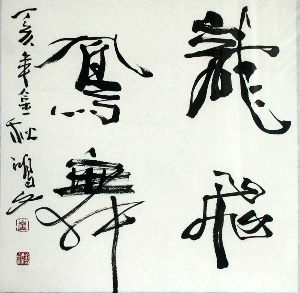 龍飛
鳳舞
丁亥年金秋